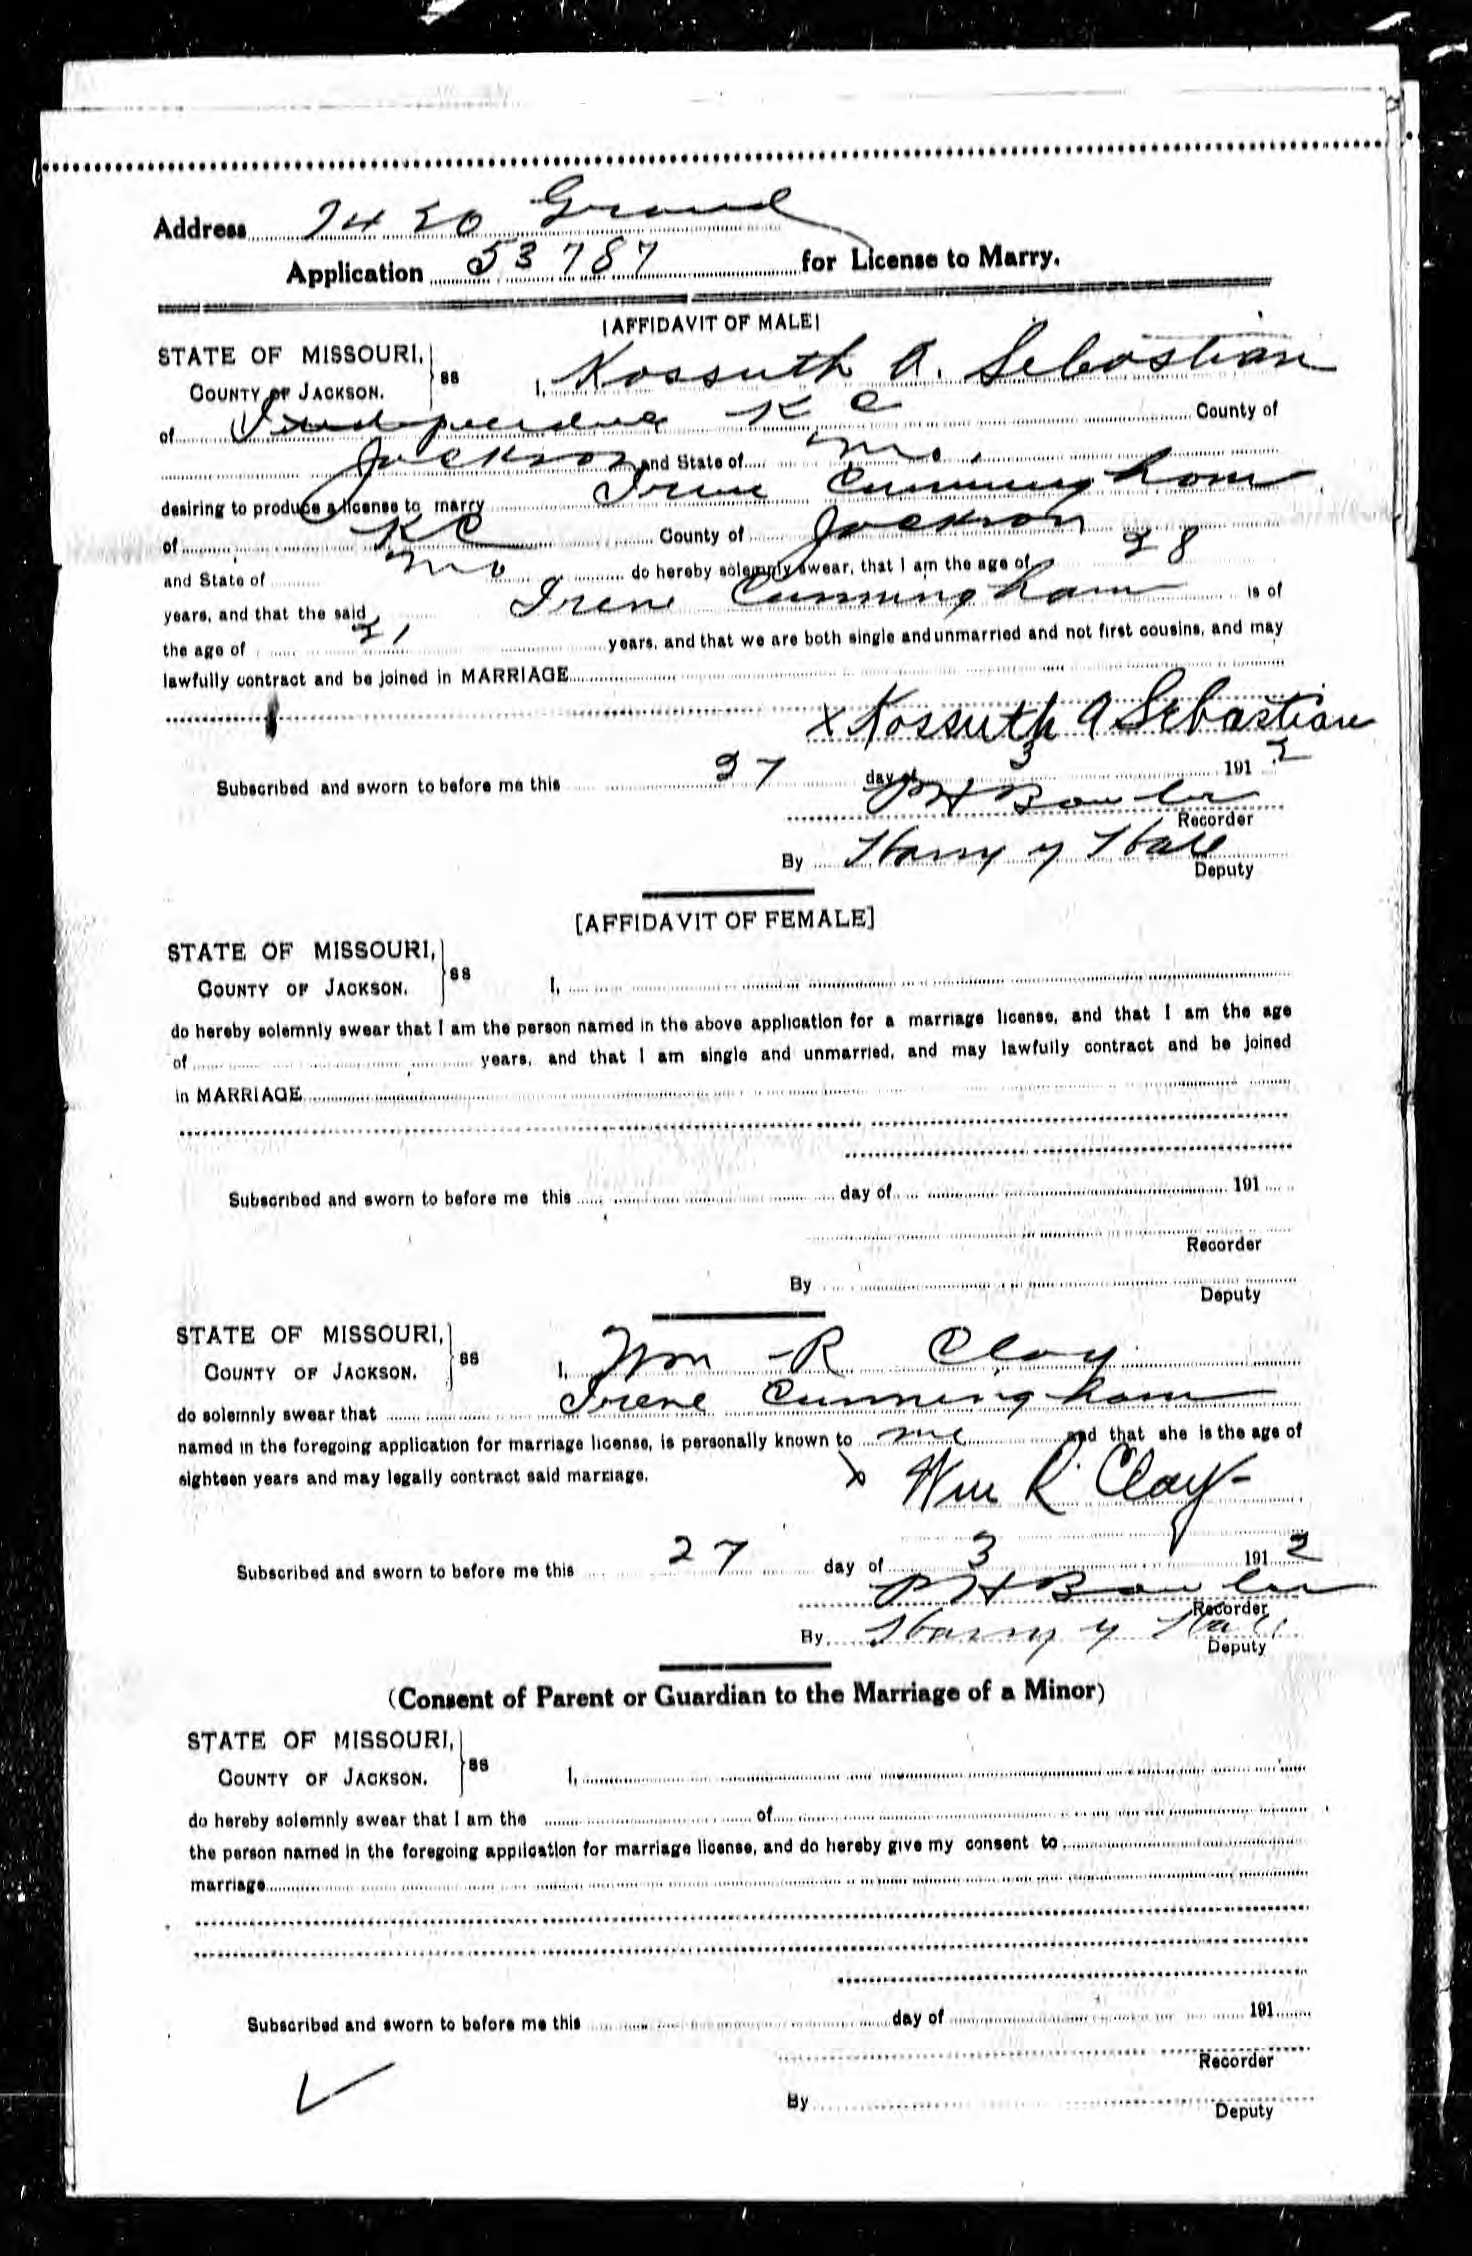 Address 7420 Grand
Application 53787 for License to Marry.
[AFFIDAVIT OF MALE]
STATE OF MISSOURI,
COUNTY OF JACKSON. } ss I, Kossuth A. Sebastian
of Independence K C County of
Jackson and State of Mo.
desiring to produce a license to marry Irene Cunningham
of K C County of Jackson
and State of Mo do hereby solemnly swear, that I am the age of 28
years, and that the said Irene Cunningham is of
the age of 21 years, and that we are both single and unmarried and not first cousins, and may
lawfully contract and be joined in MARRIAGE
x Kossuth A Sebastian
Subscribed and sworn to before me this 27 day of 3 1912
Recorder
By Harry Y Hall
Deputy
[AFFIDAVIT OF FEMALE]
STATE OF MISSOURI,
COUNTY OF JACKSON. } ss I,
do hereby solemnly swear that I am the person named in the above application for a marriage license, and that I am the age
of years, and that I am single and unmarried, and may lawfully contract and be joined
in MARRIAGE
Subscribed and sworn to before me this day of 191
Recorder
By
Deputy
STATE OF MISSOURI,
COUNTY OF JACKSON. } ss I, Wm R Clay
do solemnly swear that Irene Cunningham
named in the foregoing application for marriage license, is personally known to me and that she is the age of
eighteen years and may legally contract said marriage.
x Wm R Clay
Subscribed and sworn to before me this 27 day of 3 1912
Recorder
By Harry Y Hall
Deputy
(Consent of Parent or Guardian to the Marriage of a Minor)
STATE OF MISSOURI,
COUNTY OF JACKSON. } ss I,
do hereby solemnly swear that I am the of
the person named in the foregoing application for marriage license, and do hereby give my consent to
marriage
Subscribed and sworn to before me this day of 191
Recorder
By
Deputy